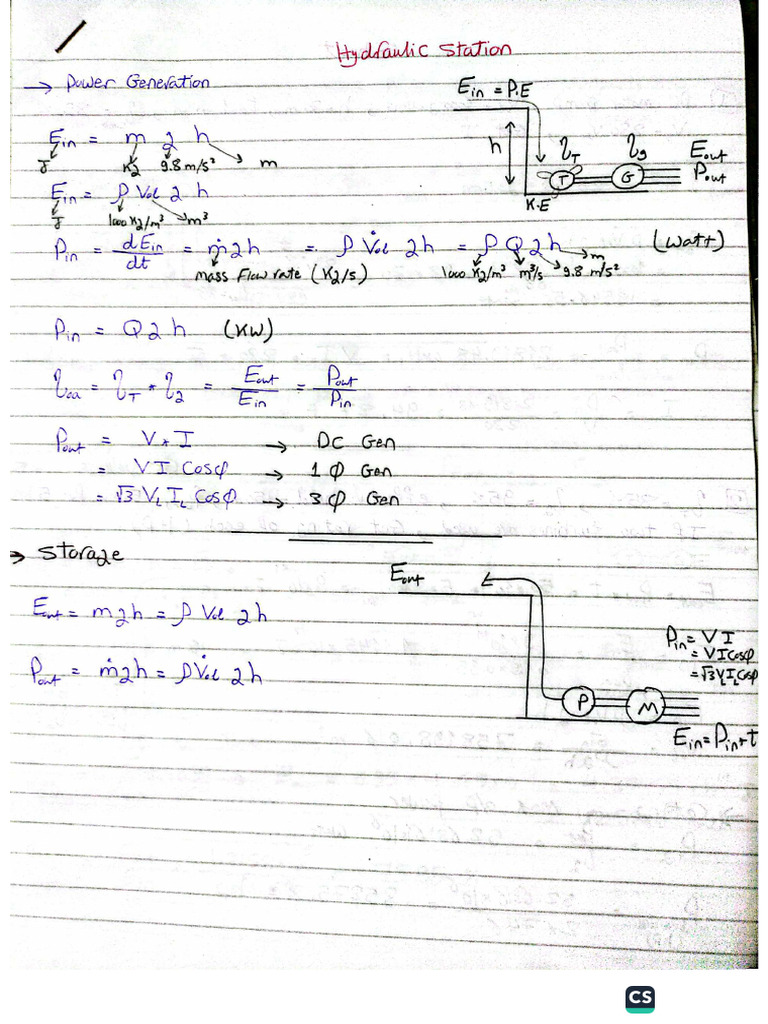 Hydraulic Station
→ Power Generation
E_in = P.E
E_in = m g h
J Kg 9.8 m/s² m
h η_T η_g E_out
T G P_out
K.E
E_in = ρ Vol g h
J 1000 Kg/m³ m³
P_in = dE_in/dt = ṁ g h = ρ V̇ol g h = ρ Q g h (Watt)
mass flow rate (Kg/s) 1000 Kg/m³ m³/s 9.8 m/s² m
P_in = Q g h (KW)
η_oa = η_T * η_g = E_out/E_in = P_out/P_in
P_out = V * I → DC Gen
= V I Cosφ → 1 φ Gen
= √3 V_L I_L Cosφ → 3 φ Gen
→ Storage
E_out
E_out = m g h = ρ Vol g h
P_out = ṁ g h = ρ V̇ol g h
P_in = V I
= V I Cosφ
= √3 V_L I_L Cosφ
P M
E_in = P_in * t
CS